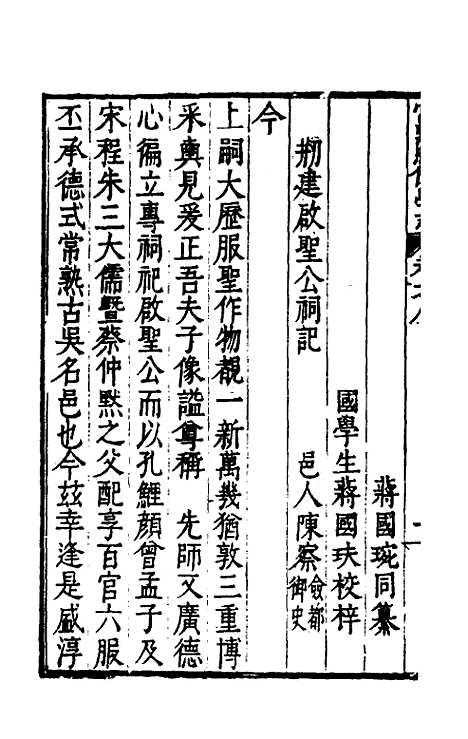 蔣國琬同纂
國學生蔣國玞校梓
刱建啟聖公祠記　邑人陳察僉都御史
今
上嗣大歷服聖作物覩一新萬幾猶敦三重博
采輿見爰正吾夫子像謚尊稱　先師又廣德
心徧立專祠祀啟聖公而以孔鯉顏曾孟子及
宋程朱三大儒暨蔡仲黙之父配享百官六服
丕承德式常熟古吳名邑也今玆幸逢是盛淳